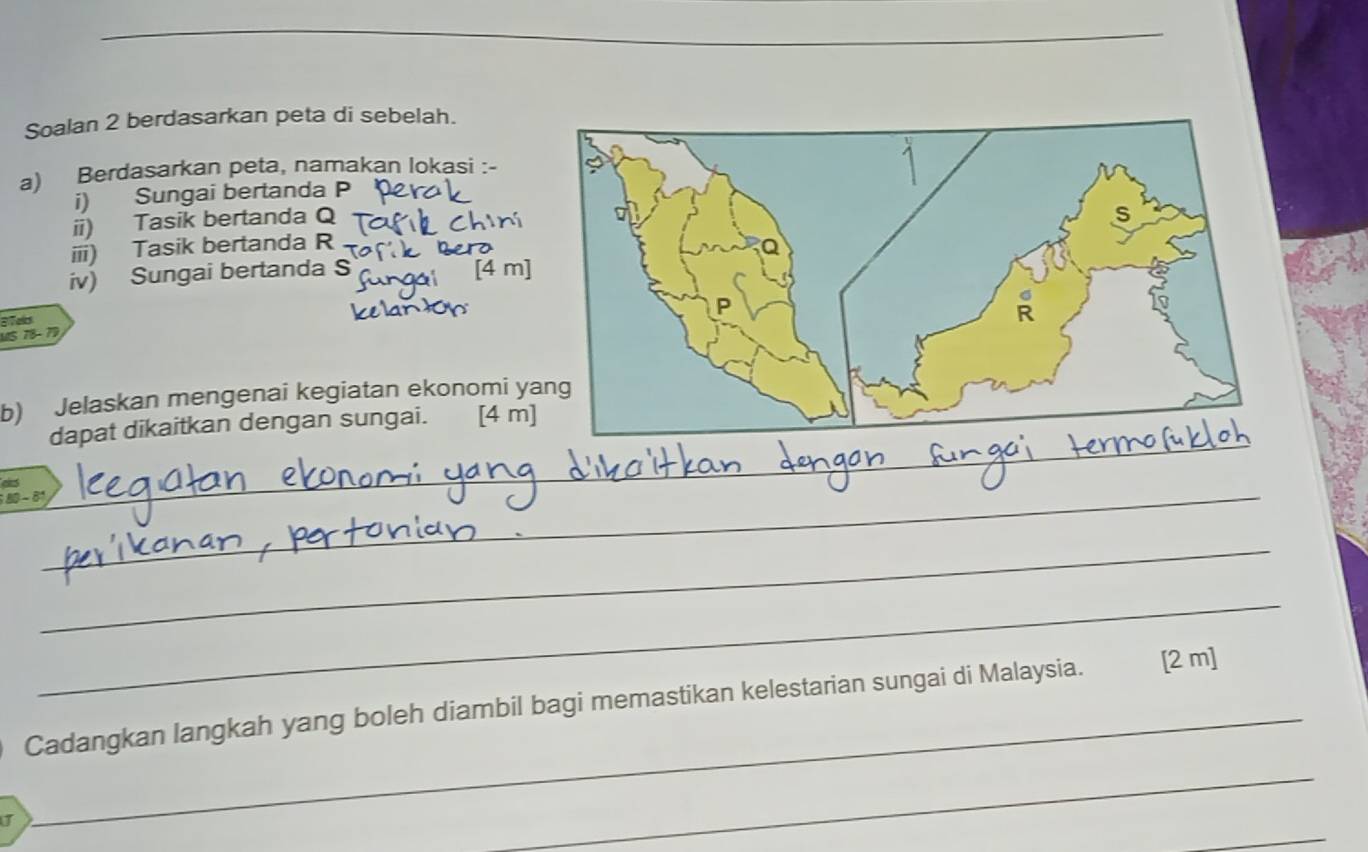 Soalan 2 berdasarkan peta di sebelah.
a) Berdasarkan peta, namakan lokasi :-
i) Sungai bertanda P perak
ii) Tasik bertanda Q Tasik Chini
iii) Tasik bertanda R Tasik Bera
iv) Sungai bertanda S Sungai [4 m]
kelantan
BTeks
MS 78- 79
P
Q
R
S
b) Jelaskan mengenai kegiatan ekonomi yang
dapat dikaitkan dengan sungai. [4 m]
80 - 81
keegiatan ekonomi yang dikaitkan dengan sungai termasuklah
perikanan, pertanian.
Cadangkan langkah yang boleh diambil bagi memastikan kelestarian sungai di Malaysia. [2 m]